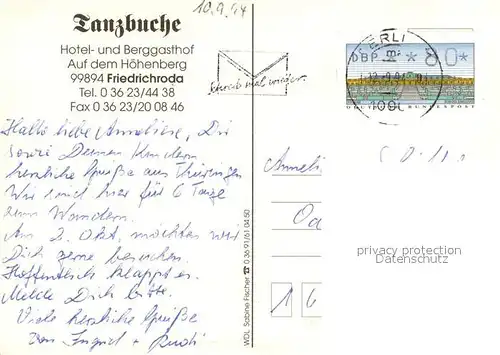 Tanzbuche
Hotel- und Berggasthof
Auf dem Höhenberg
99894 Friedrichroda
Tel. 0 36 23/44 38
Fax 0 36 23/20 08 46
10.9.94
Schreib mal wieder
DBP
*80*
DEUTSCHE BUNDESPOST
Hallo liebe Anneliese, Dir
sowie Deinen Kindern
herzliche Grüße aus Thüringen
Wir sind hier für 6 Tage
zum Wandern.
Am 2. Okt. möchten wir
Dich gerne besuchen.
Hoffentlich klappt es.
Melde Dich bitte.
Viele herzliche Grüße
von Ingrid + Rudi
Anneli
1 6
WDL Sabine Fischer ☎ 0 36 91/61 04 50
privacy protection
Datenschutz